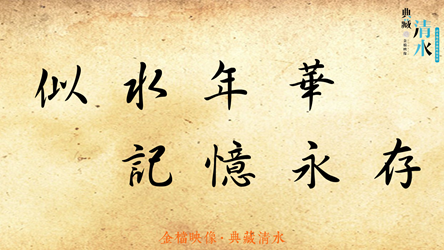 似水年華
記憶永存
金檔映像·典藏清水
典藏
清水